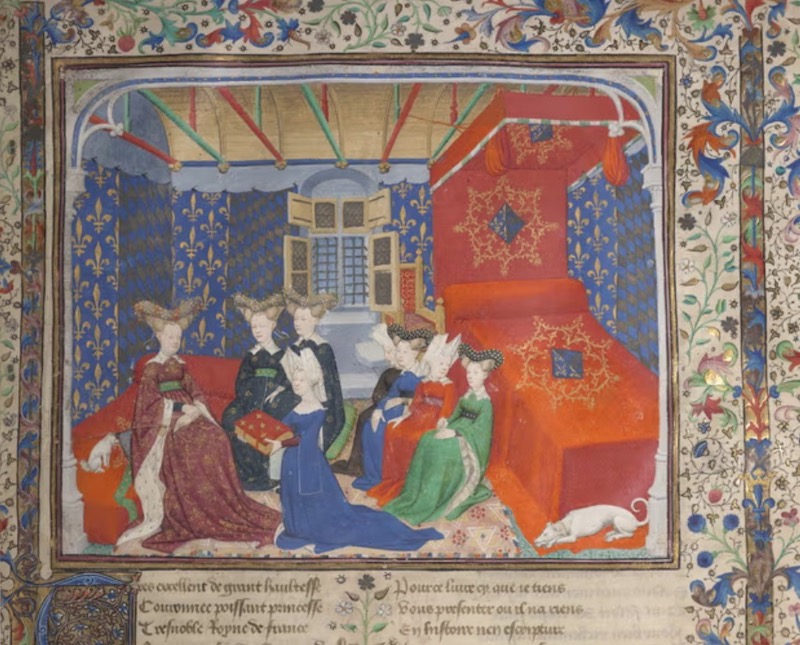 Tres excelent de grant haultesse
Couronnee poissant princesse
Tresnoble Royne de france
Pource liure cy que ie tiens
Vous presenter ou il na riens
En histoire nen escripture